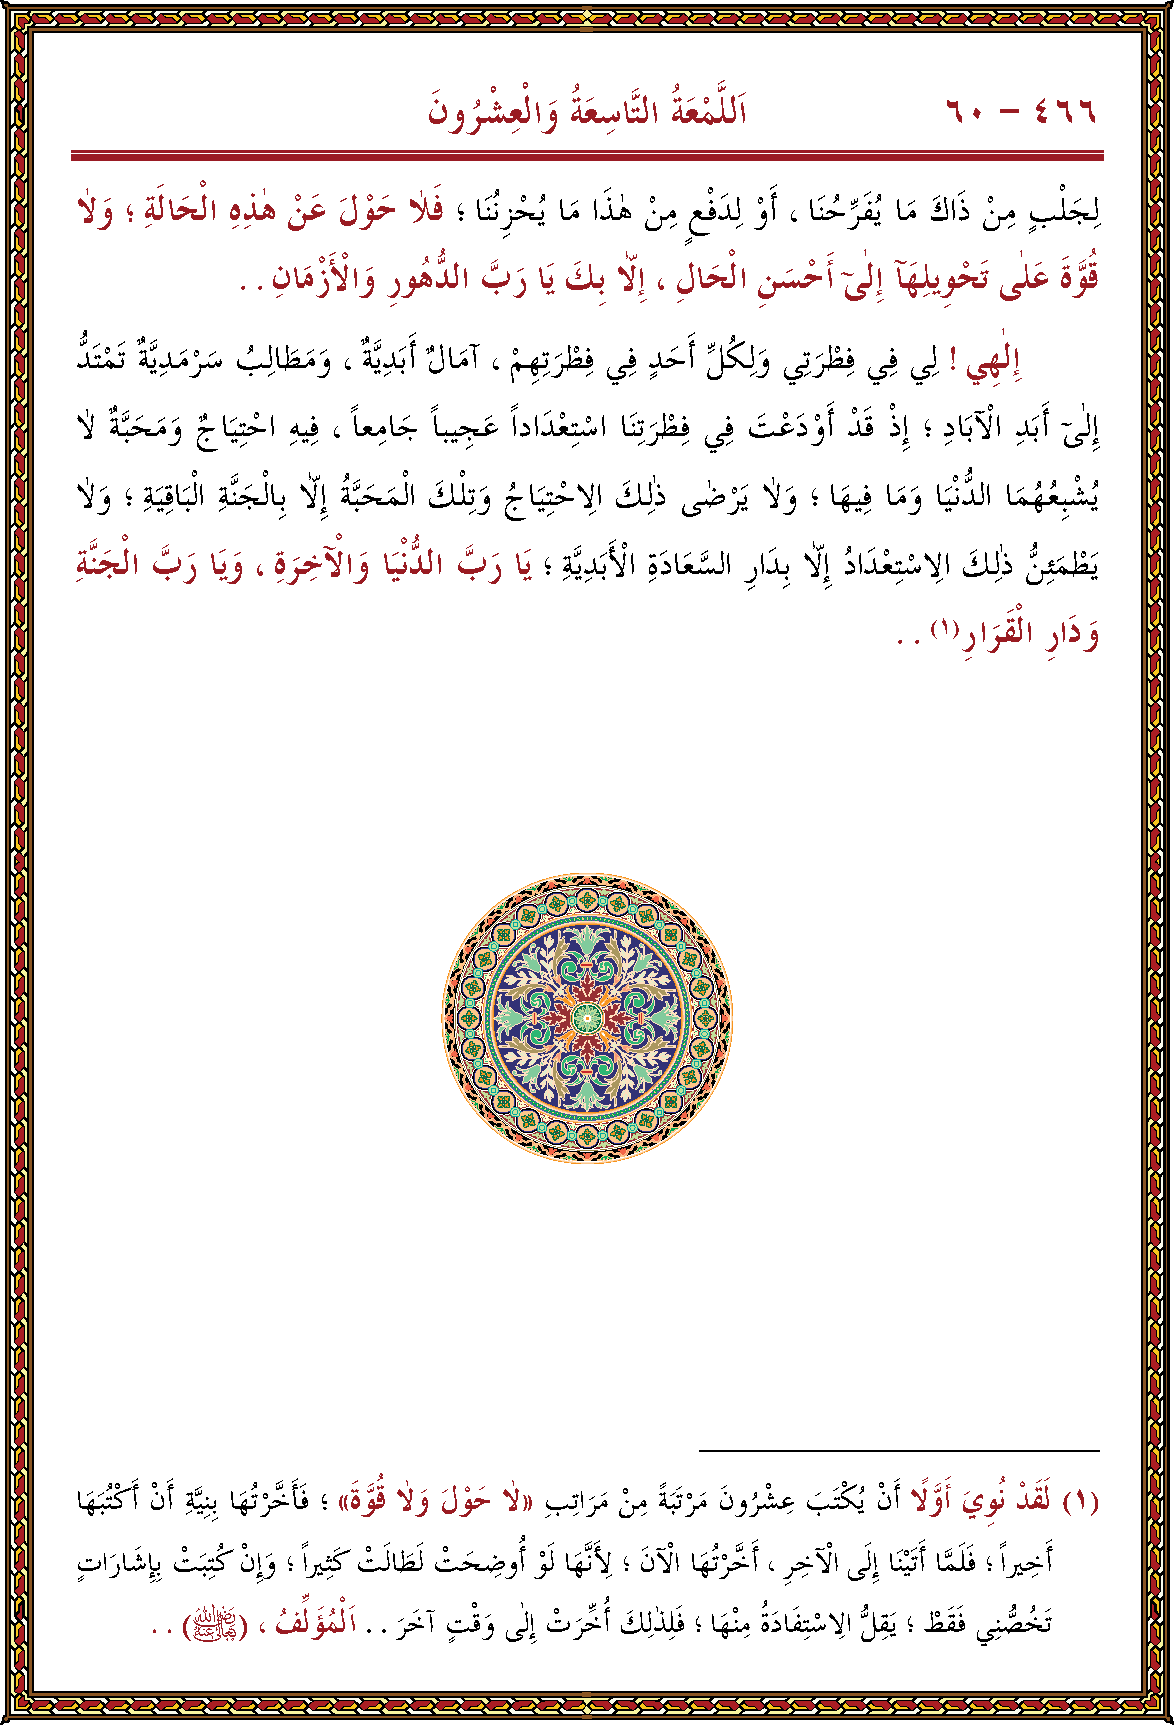 ٤٦٦ – ٦٠ اَللَّمْعَةُ التَّاسِعَةُ وَالْعِشْرُونَ
لِجَلْبٍ مِنْ ذَاكَ مَا يُفَرِّحُنَا ، أَوْ لِدَفْعٍ مِنْ هٰذَا مَا يُحْزِنُنَا ؛ فَلَا حَوْلَ عَنْ هٰذِهِ الْحَالَةِ ؛ وَلَا
قُوَّةَ عَلَى تَحْوِيلِهَآ إِلٰىٓ أَحْسَنِ الْحَالِ ، إِلَّا بِكَ يَا رَبَّ الدُّهُورِ وَالْأَزْمَانِ . .
إِلٰهِي ! لِي فِي فِطْرَتِي وَلِكُلِّ أَحَدٍ فِي فِطْرَتِهِمْ ، آمَالٌ أَبَدِيَّةٌ ، وَمَطَالِبُ سَرْمَدِيَّةٌ تَمْتَدُّ
إِلٰىٓ أَبَدِ الْآبَادِ ؛ إِذْ قَدْ أَوْدَعْتَ فِي فِطْرَتِنَا اسْتِعْدَاداً عَجِيباً جَامِعاً ، فِيهِ احْتِيَاجٌ وَمَحَبَّةٌ لَا
يُشْبِعُهُمَا الدُّنْيَا وَمَا فِيهَا ؛ وَلَا يَرْضٰى ذٰلِكَ الِاحْتِيَاجُ وَتِلْكَ الْمَحَبَّةُ إِلَّا بِالْجَنَّةِ الْبَاقِيَةِ ؛ وَلَا
يَطْمَئِنُّ ذٰلِكَ الِاسْتِعْدَادُ إِلَّا بِدَارِ السَّعَادَةِ الْأَبَدِيَّةِ ؛ يَا رَبَّ الدُّنْيَا وَالْآخِرَةِ ، وَيَا رَبَّ الْجَنَّةِ
وَدَارِ الْقَرَارِ(١) . .
(١) لَقَدْ نُوِيَ أَوَّلًا أَنْ يُكْتَبَ عِشْرُونَ مَرْتَبَةً مِنْ مَرَاتِبِ «لَا حَوْلَ وَلَا قُوَّةَ» ؛ فَأَخَّرْتُهَا بِنِيَّةِ أَنْ أَكْتُبَهَا
أَخِيراً ؛ فَلَمَّا أَتَيْنَا إِلَى الْآخِرِ ، أَخَّرْتُهَا الْآنَ ؛ لِأَنَّهَا لَوْ أُوضِحَتْ لَطَالَتْ كَثِيراً ؛ وَإِنْ كُتِبَتْ بِإِشَارَاتٍ
تَخُصُّنِي فَقَطْ ؛ يَقِلُّ الِاسْتِفَادَةُ مِنْهَا ؛ فَلِذٰلِكَ أُخِّرَتْ إِلٰى وَقْتٍ آخَرَ . . اَلْمُؤَلِّفُ ، (رضي الله تعالى عنه) . .